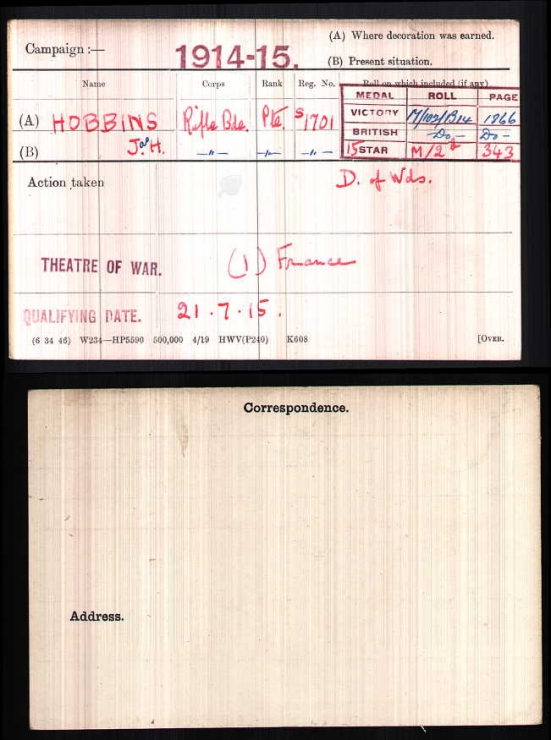 (A) Where decoration was earned.
Campaign :— 1914-15.
(B) Present situation.
Name Corps Rank Reg. No. Roll on which included (if any)
MEDAL ROLL PAGE
(A) HOBBINS Rifle Bde. Pte. S/1701 VICTORY 1866
BRITISH -Do- -Do-
(B) Jas H. —"— —"— —"— 15 STAR M/2 343
Action taken D. of Wds.
THEATRE OF WAR. (1) France
QUALIFYING DATE. 21.7.15.
(6 34 46) W234—HP5590 500,000 4/19 HWV(P240) K608 [OVER.
Correspondence.
Address.